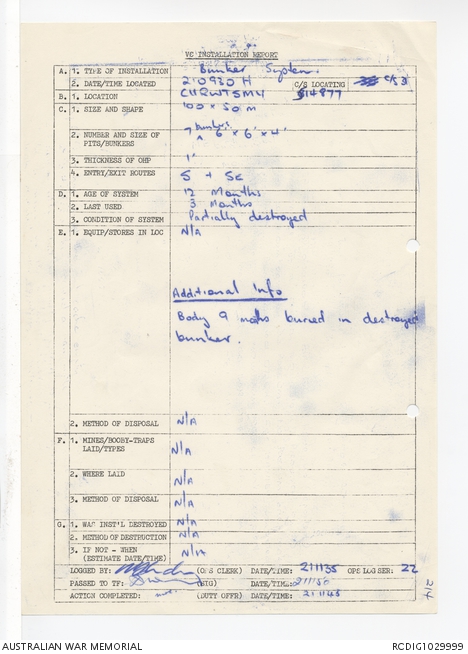 VC INSTALLATION REPORT
A. 1. TYPE OF INSTALLATION Bunker System.
2. DATE/TIME LOCATED 210930 H C/S LOCATING C/S 31
B. 1. LOCATION 814877
C. 1. SIZE AND SHAPE 100 x 50 m
2. NUMBER AND SIZE OF PITS/BUNKERS 7 bunkers 6' x 6' x 4'
3. THICKNESS OF OHP 1'
4. ENTRY/EXIT ROUTES S + SE
D. 1. AGE OF SYSTEM 12 Months
2. LAST USED 3 Months
3. CONDITION OF SYSTEM Partially destroyed
E. 1. EQUIP/STORES IN LOC N/A
Additional Info
Body 9 mths buried in destroyed
bunker.
2. METHOD OF DISPOSAL N/A
F. 1. MINES/BOOBY-TRAPS LAID/TYPES N/A
2. WHERE LAID N/A
3. METHOD OF DISPOSAL N/A
G. 1. WAS INST'L DESTROYED N/A
2. METHOD OF DESTRUCTION N/A
3. IF NOT - WHEN (ESTIMATE DATE/TIME) N/A
LOGGED BY: (OPS CLERK) DATE/TIME: 211135 OPS LOG SER: 22
PASSED TO TF: (SIG) DATE/TIME:
ACTION COMPLETED: (DUTY OFFR) DATE/TIME: 211145
2/4
AUSTRALIAN WAR MEMORIAL RCDIG1029999